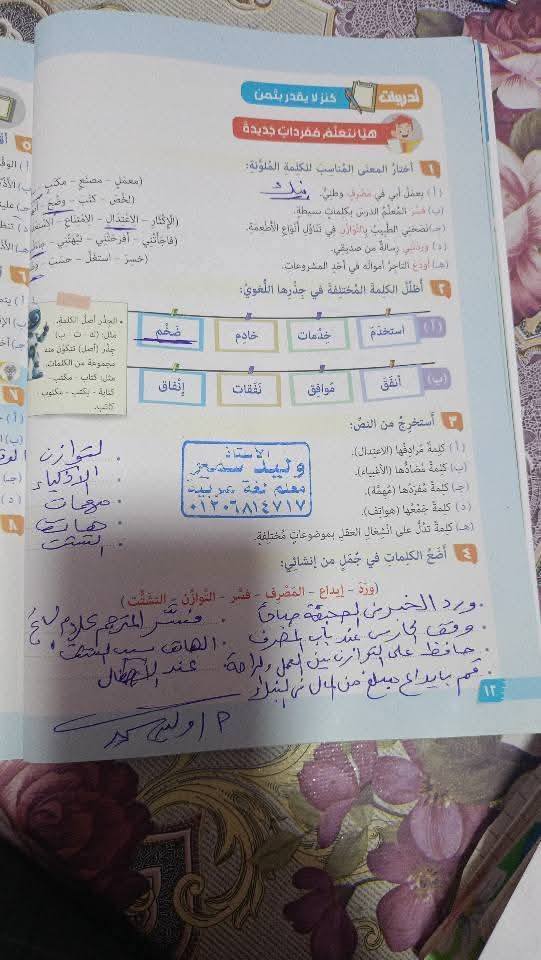 تدريبات
كنز لا يقدر بثمن
هيا نتعلم مفردات جديدة
١ أختار المعنى المناسب للكلمة الملونة:
(أ) يعمل أبي في مصرف وطني. بنك (معمل - مصنع - مكتب
(ب) فسر المعلم الدرس بكلمات بسيطة. (لخص - كتب - وضح
(جـ) نصحني الطبيب بالتوازن في تناول أنواع الأطعمة. (الإكثار - الاعتدال - الامتناع -
(د) وردتني رسالة من صديقي. (فاجأتني - أفرحتني - نبهتني -
(هـ) أودع التاجر أمواله في أحد المشروعات. (خسر - استغل - حسب -
٢ أظلل الكلمة المختلفة في جذرها اللغوي:
(أ) استخدم خدمات خادم ضخم
(ب) أنفق موافق نفقات إنفاق
• الجذر أصل الكلمة.
مثل: (ك - ت - ب)
جذر (أصل) تتكون منه
مجموعة من الكلمات.
مثل: كتاب - مكتب -
كتابة - يكتب - مكتوب
كاتب.
٣ أستخرج من النص:
(أ) كلمة مرادفها (الاعتدال). التوازن
(ب) كلمة مضادها (الأغبياء). الأذكياء
(جـ) كلمة مفردها (مهمة). مهمات
(د) كلمة جمعها (هواتف). هاتف
(هـ) كلمة تدل على انشغال العقل بموضوعات مختلفة. التشتت
الأستاذ
وليد سمير
معلم لغة عربية
٠١٢٠٦٨١٤٧١٧
٤ أضع الكلمات في جمل من إنشائي:
(ورد - إيداع - المصرف - فسر - التوازن - التشتت)
ورد الخبر في الصحيفة صباحاً . فسَّر المترجم كلام
وقف الحارس عند باب المصرف . الهاتف سبب التشتت
حافظ على التوازن بين العمل والراحة عند الأطفال
قم بإيداع مبلغ من المال في البنك
١٢